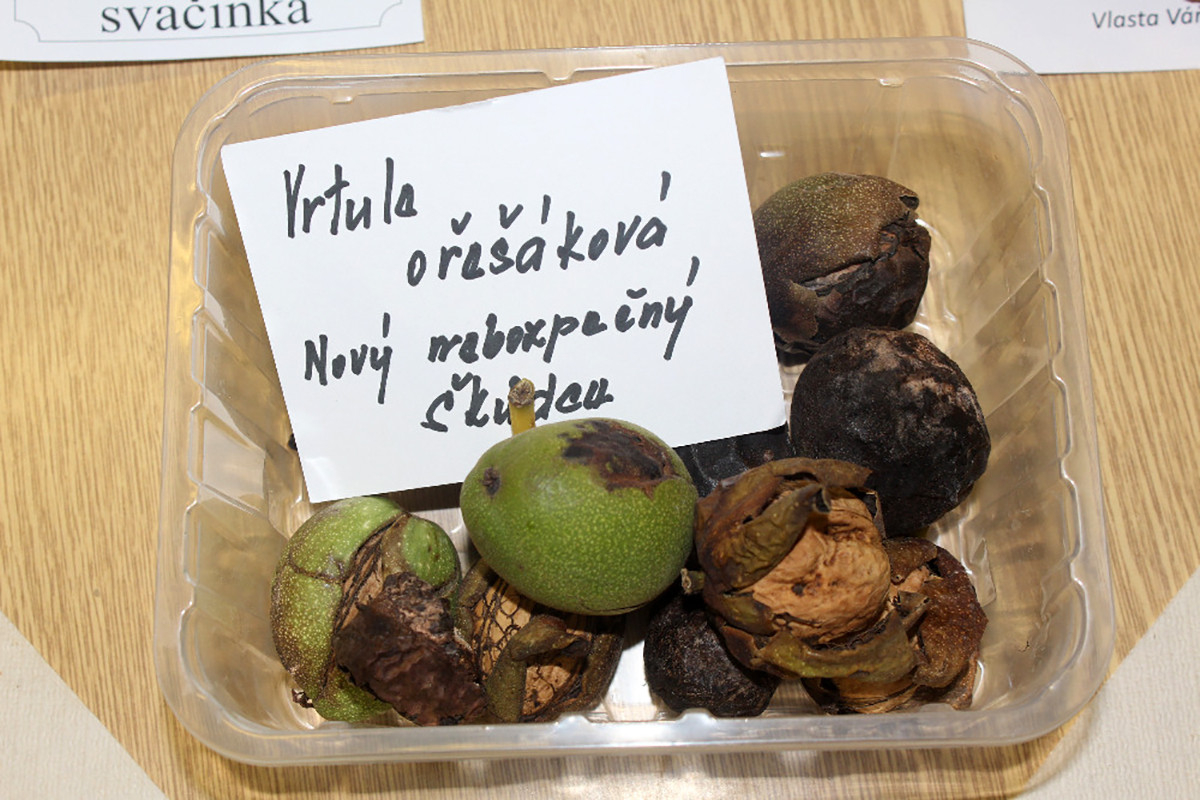 svačinka
Vlasta Vár
Vrtule
ořešáková
Nový nebezpečný
škůdce